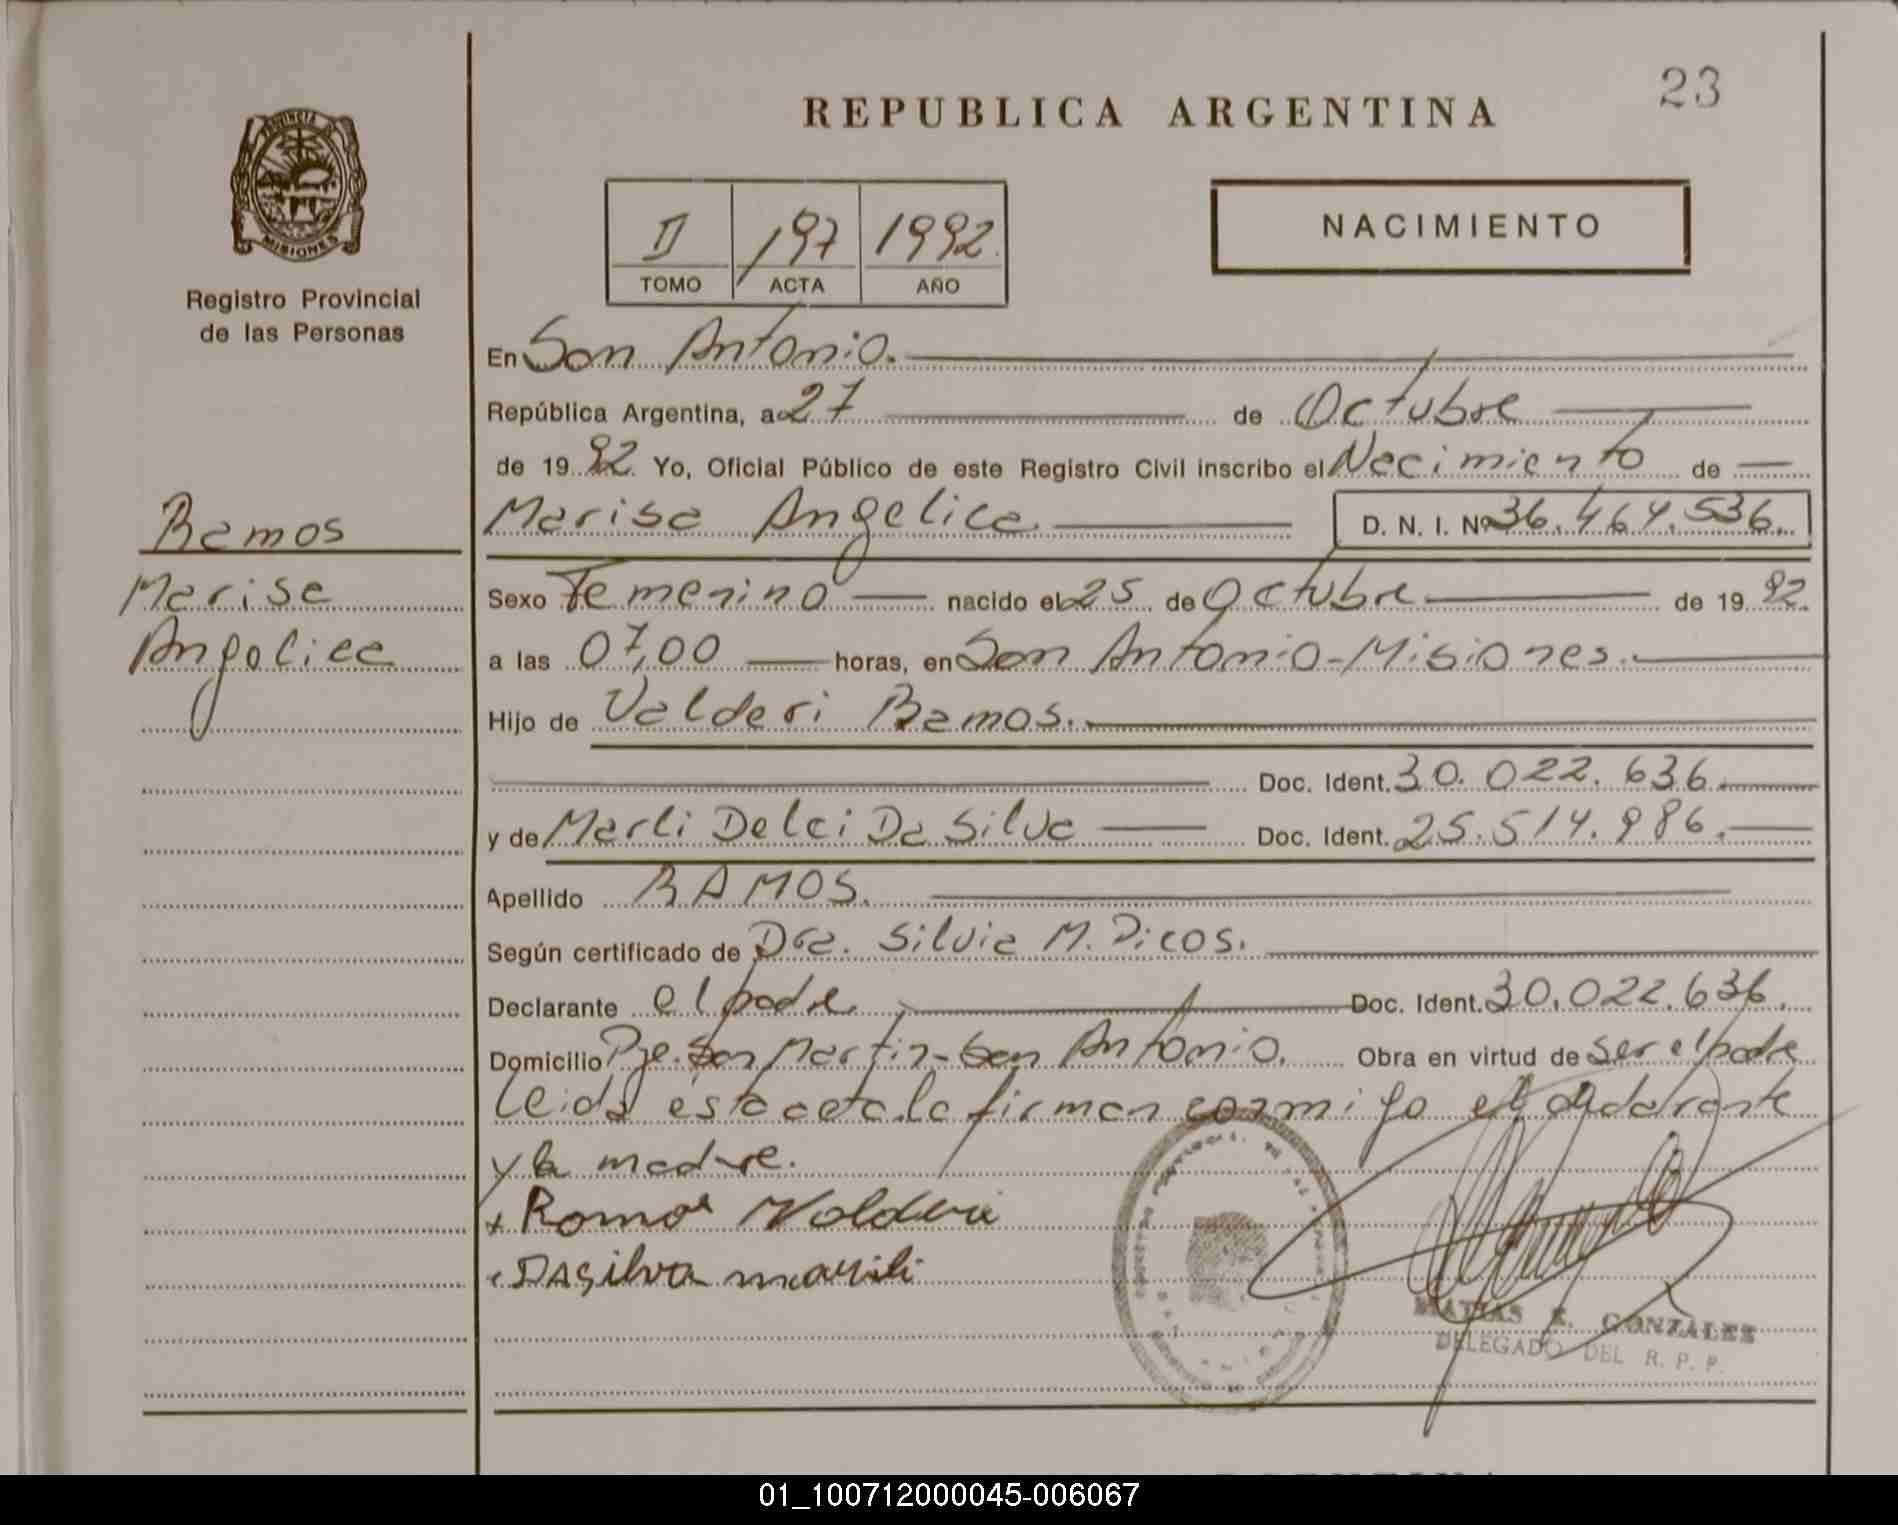 23
REPUBLICA ARGENTINA
PROVINCIA DE
MISIONES
Registro Provincial
de las Personas
II 197 1992.
TOMO ACTA AÑO
NACIMIENTO
En San Antonio.
República Argentina, a 27 de Octubre
de 1992. Yo, Oficial Público de este Registro Civil inscribo el Nacimiento de
Ramos
Marisa
Angelica
Marisa Angelica D. N. I. Nº 36.464.536.
Sexo Femenino nacido el 25 de Octubre de 1992.
a las 07,00 horas, en San Antonio-Misiones.
Hijo de Valderi Ramos.
Doc. Ident. 30.022.636.
y de Marli Delci Da Silva Doc. Ident. 25.514.986.
Apellido RAMOS.
Según certificado de Dra. Silvia M. Dicos.
Declarante el padre. Doc. Ident. 30.022.636.
Domicilio Pje. San Martin-San Antonio. Obra en virtud de ser el padre
Leida esta acta la firman conmigo el declarante
y la madre.
x Ramos Valderi
x DAsilva marili
MATIAS E. GONZALEZ
DELEGADO DEL R. P. P.
01_100712000045-006067